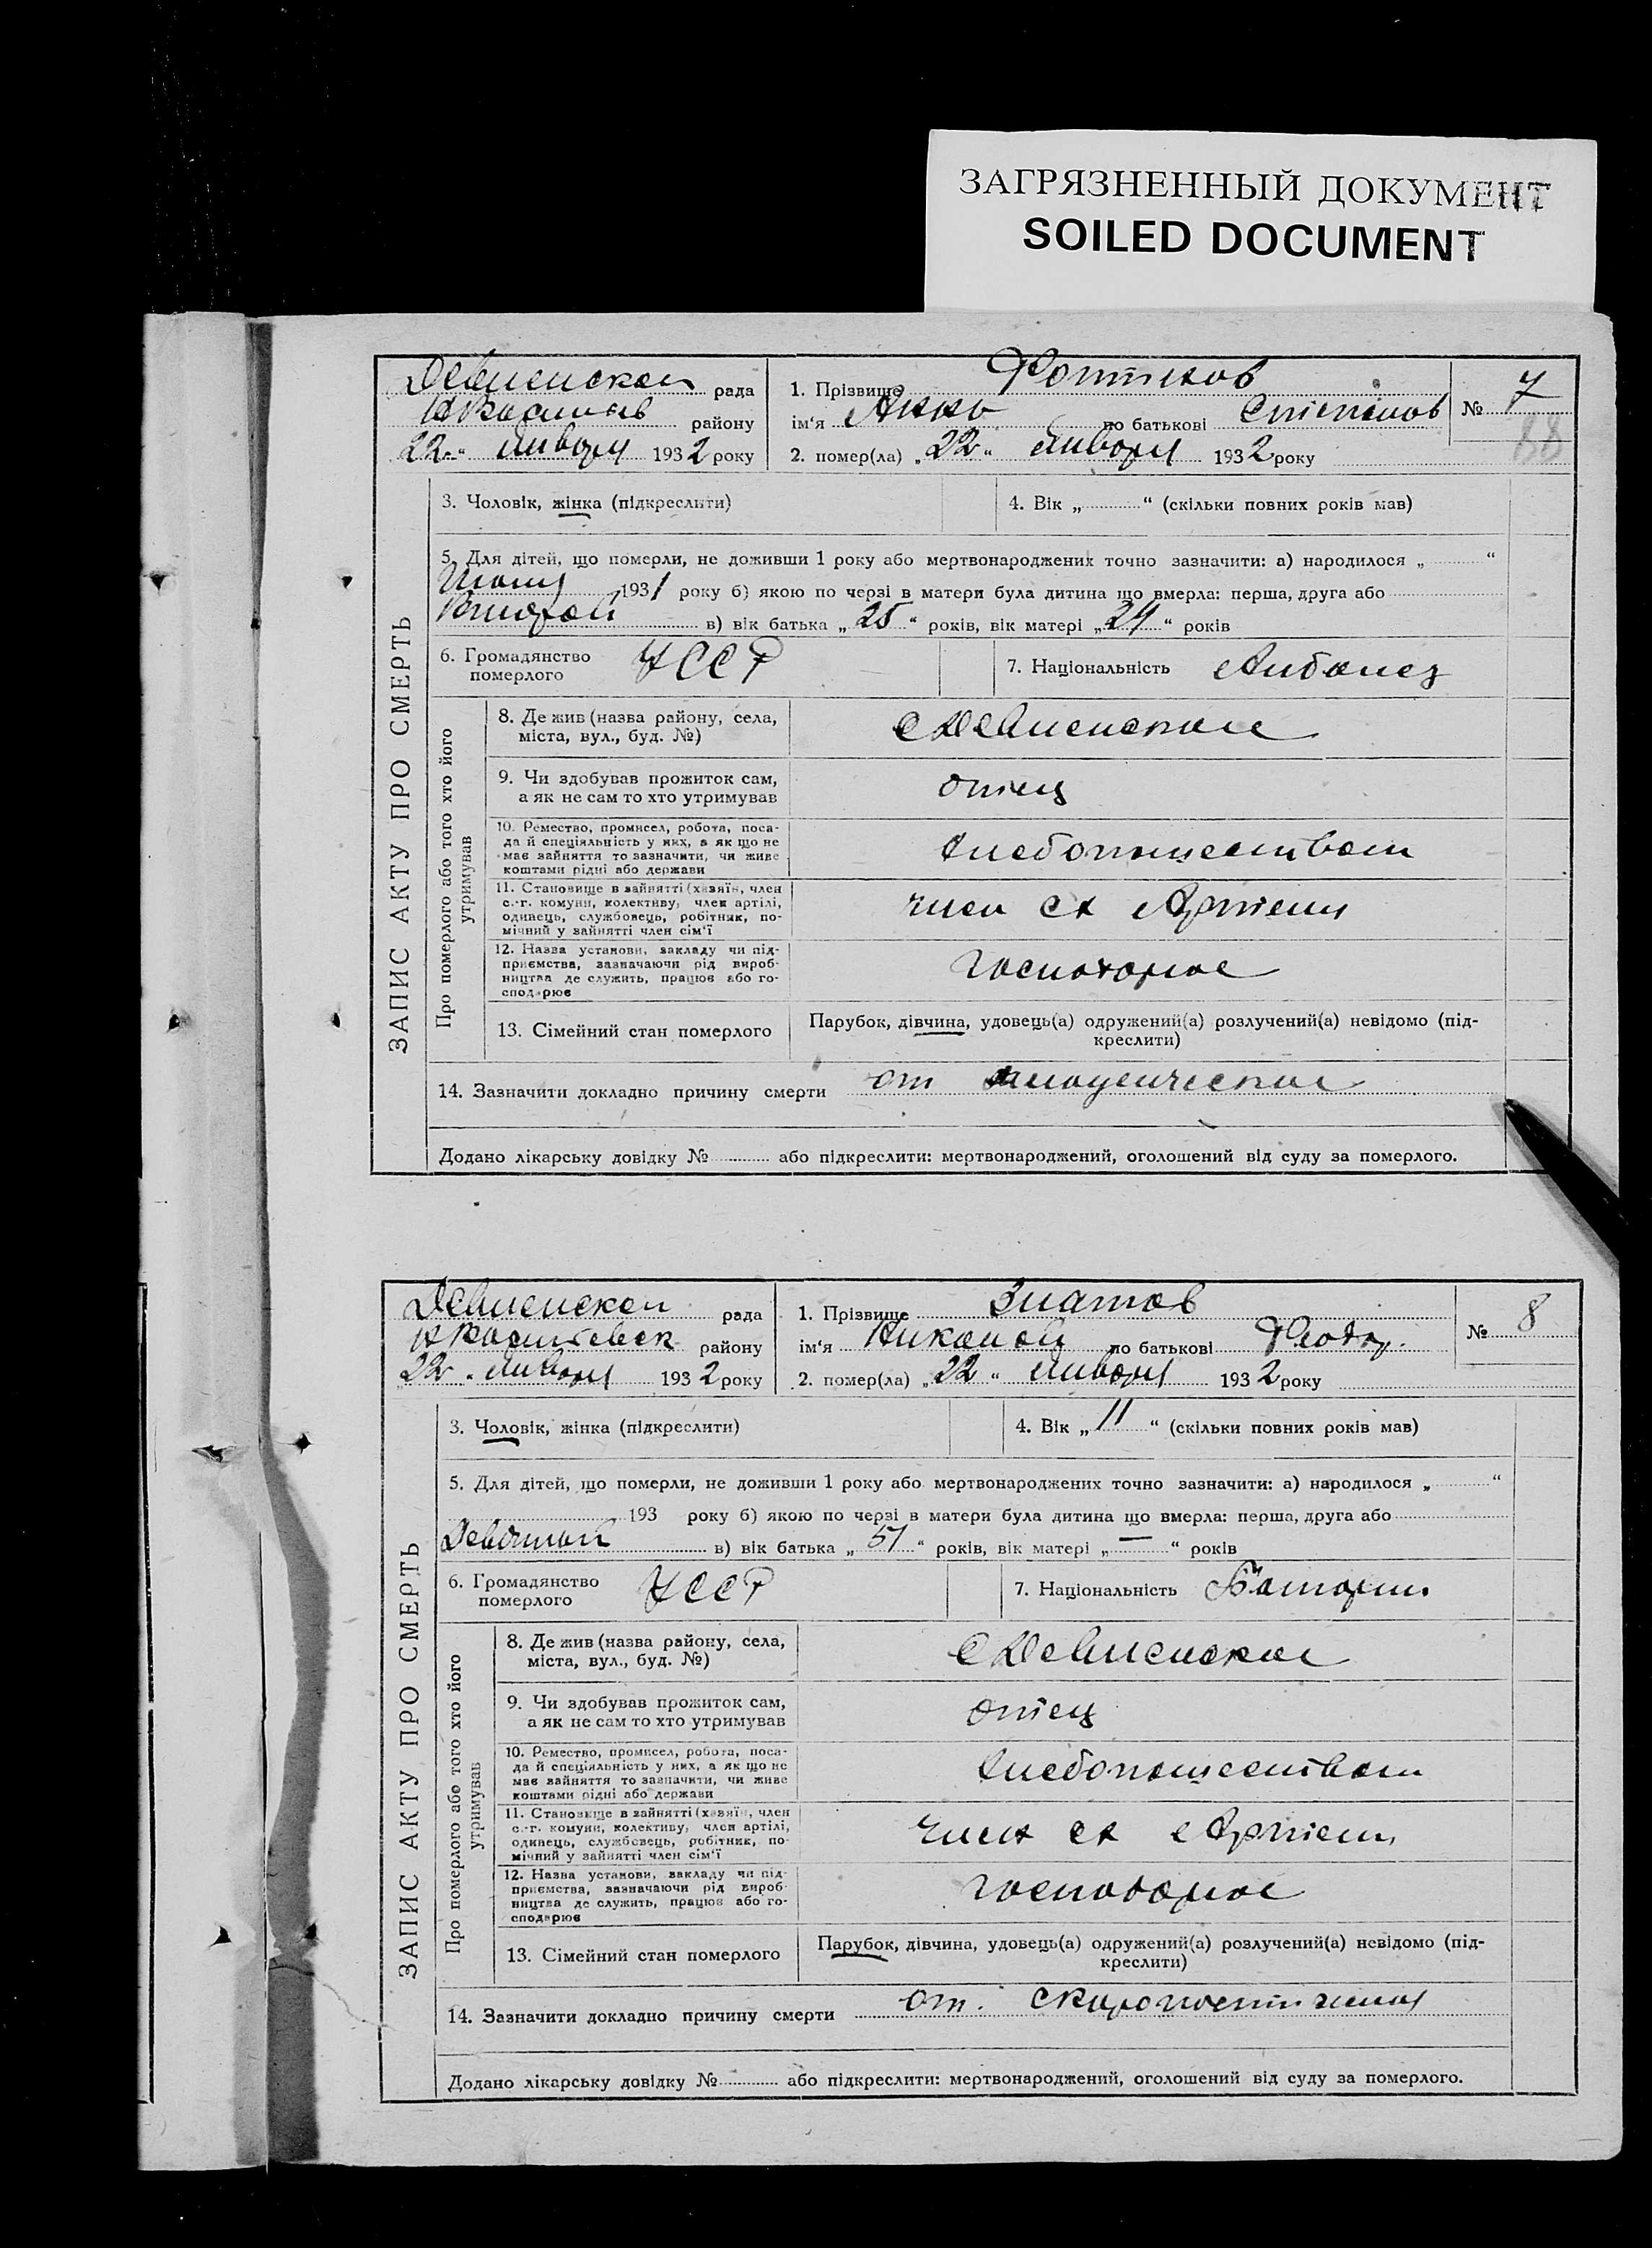 ЗАГРЯЗНЕННЫЙ ДОКУМЕНТ
SOILED DOCUMENT
ЗАПИС АКТУ ПРО СМЕРТЬ
Девненской рада
району
22 " Января 1932 року
1. Прізвище Фотиков
ім'я по батькові Степанов
2. помер(ла) „ 22 " Января 1932 року
№ 7
88
3. Чоловік, жінка (підкреслити)
4. Вік „ " (скільки повних років мав)
5. Для дітей, що померли, не доживши 1 року або мертвонароджених точно зазначити: а) народилося „ "
1931 року б) якою по черзі в матери була дитина що вмерла: перша, друга або
Второй в) вік батька „ 25 " років, вік матері „ 24 " років
6. Громадянство
померлого
УССР
7. Національність Албанец
Про померлого або того хто його
утримував
8. Де жив (назва району, села,
міста, вул., буд. №)
С Девненское
9. Чи здобував прожиток сам,
а як не сам то хто утримував
отец
10. Ремество, промисел, робота, поса-
да й спеціяльність у них, а як що не
має зайняття то зазначити, чи живе
коштами рідні або держави
хлебопашеством
11. Становище в зайнятті (хазяїн, член
с.-г. комуни, колективу, член артілі,
одинець, службовець, робітник, по-
мічний у зайнятті член сім'ї
член сх Артели
12. Назва установи, закладу чи під-
приємства, зазначаючи рід вироб-
ництва де служить, працює або го-
сподарює
13. Сімейний стан померлого
Парубок, дівчина, удовець(а) одружений(а) розлучений(а) невідомо (під-
креслити)
14. Зазначити докладно причину смерти от младенческой
Додано лікарську довідку № або підкреслити: мертвонароджений, оголошений від суду за померлого.
ЗАПИС АКТУ ПРО СМЕРТЬ
Девненской рада
району
„ 22 " Января 1932 року
1. Прізвище Златов
ім'я Николай по батькові Феодор.
2. помер(ла) „ 22 " Января 1932 року
№ 8
3. Чоловік, жінка (підкреслити)
4. Вік „ 11 " (скільки повних років мав)
5. Для дітей, що померли, не доживши 1 року або мертвонароджених точно зазначити: а) народилося „ "
193 року б) якою по черзі в матери була дитина що вмерла: перша, друга або
Девятый в) вік батька „ 51 " років, вік матері „ — " років
6. Громадянство
померлого
УССР
7. Національність
Про померлого або того хто його
утримував
8. Де жив (назва району, села,
міста, вул., буд. №)
С Девненское
9. Чи здобував прожиток сам,
а як не сам то хто утримував
отец
10. Ремество, промисел, робота, поса-
да й спеціяльність у них, а як що не
має зайняття то зазначити, чи живе
коштами рідні або держави
хлебопашеством
11. Становище в зайнятті (хазяїн, член
с.-г. комуни, колективу, член артілі,
одинець, службовець, робітник, по-
мічний у зайнятті член сім'ї
член сх Артели
12. Назва установи, закладу чи під-
приємства, зазначаючи рід вироб-
ництва де служить, працює або го-
сподарює
13. Сімейний стан померлого
Парубок, дівчина, удовець(а) одружений(а) розлучений(а) невідомо (під-
креслити)
14. Зазначити докладно причину смерти от.
Додано лікарську довідку № або підкреслити: мертвонароджений, оголошений від суду за померлого.